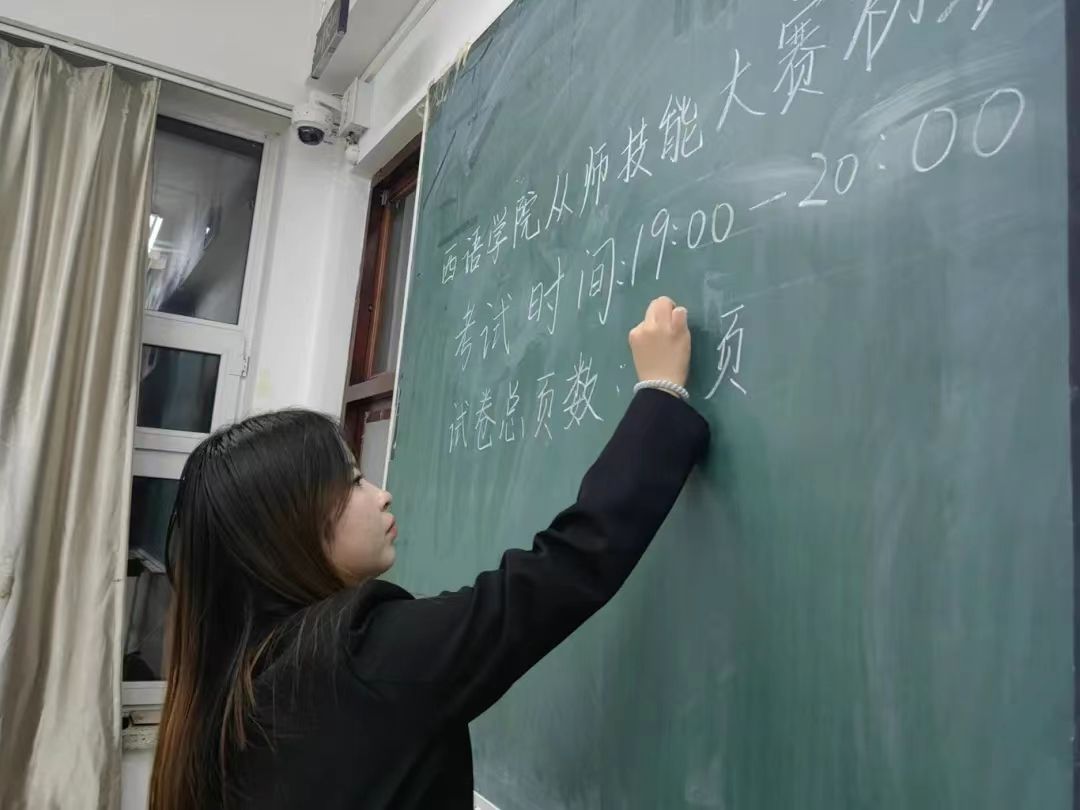 西语学院从师技能大赛初
考试时间:19:00-20:00
试卷总页数: 页